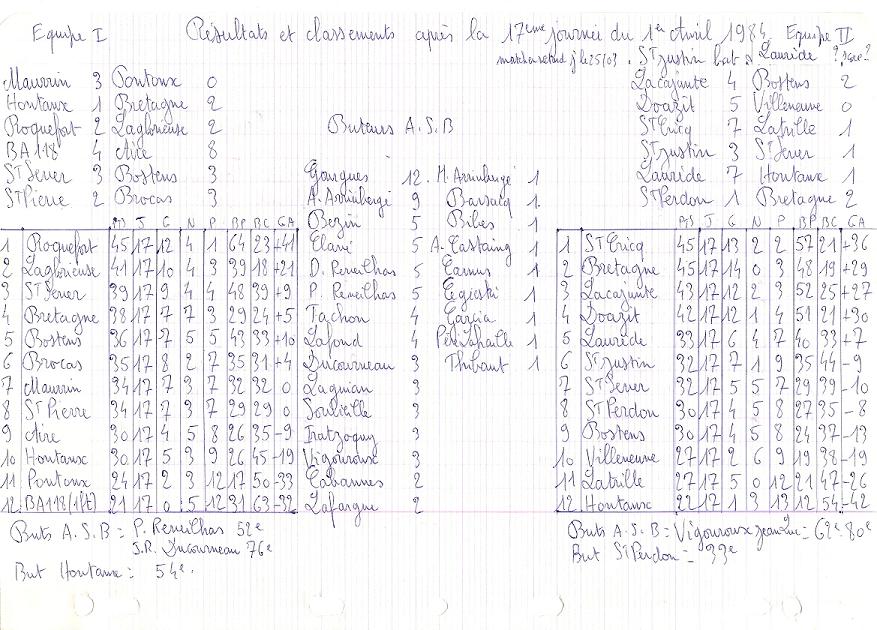 Equipe I Résultats et classements après la 17ème journée du 1er Avril 1984 Equipe II
match en retard jle 25/03. St Justin bat Laurède ? score ?
Maurrin 3 Pontonx 0
Hontanx 1 Bretagne 2
Roquefort 2 Laglorieuse 2
BA118 4 Aire 8
St Sever 3 Bostens 3
St Pierre 2 Brocas 3
Lacajunte 4 Bostens 2
Doazit 5 Villeneuve 0
St Cricq 7 Latrille 1
St Justin 3 St Sever 1
Laurède 7 Hontanx 1
St Perdon 1 Bretagne 2
Pts J G N P BP BC GA
1 Roquefort 45 17 12 4 1 64 23 +41
2 Laglorieuse 41 17 10 4 3 39 18 +21
3 St Sever 39 17 9 4 4 48 39 +9
4 Bretagne 38 17 7 7 3 29 24 +5
5 Bostens 36 17 7 5 5 43 33 +10
6 Brocas 35 17 8 2 7 35 31 +4
7 Maurrin 34 17 7 3 7 32 32 0
8 St Pierre 34 17 7 3 7 29 29 0
9 Aire 30 17 4 5 8 26 35 -9
10 Hontanx 30 17 5 3 9 26 45 -19
11 Pontonx 24 17 2 3 12 17 50 -33
12 BA118 (1ft) 21 17 0 5 12 31 63 -32
Buts A.S.B = P. Reneilhas 52e
J.R. Ducourneau 76e
But Hontanx = 54e.
Buteurs A.S.B
Gangues 12
A. Armubergé 9
Bezin 5
Clavé 5
D. Reneilhas 5
P. Reneilhas 5
Tachon 4
Lafond 4
Ducourneau 3
Laguian 3
Soulielle 3
Iratzoquy 3
Vigouroux 3
Cabannes 2
Lafargue 2
M. Armubergé 1
Barsacq 1
Bibes 1
A. Castaing 1
Camus 1
Egiaski 1
Garcia 1
Thibaut 1
Pts J G N P BP BC GA
1 St Cricq 45 17 13 2 2 57 21 +36
2 Bretagne 45 17 14 0 3 48 19 +29
3 Lacajunte 43 17 12 2 3 52 25 +27
4 Doazit 42 17 12 1 4 51 21 +30
5 Laurède 33 17 6 4 7 40 33 +7
6 St Justin 32 17 7 1 9 35 44 -9
7 St Sever 32 17 5 5 7 29 39 -10
8 St Perdon 30 17 4 5 8 27 35 -8
9 Bostens 30 17 4 5 8 24 37 -13
10 Villeneuve 27 17 2 6 9 19 38 -19
11 Latrille 27 17 5 0 12 21 47 -26
12 Hontanx 22 17 1 3 13 12 54 -42
Buts A.S.B = Vigouroux Jean Luc = 62e 80e
But St Perdon = 33e